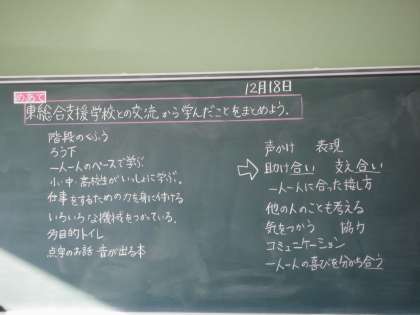 12月18日
めあて
東総合支援学校との交流から学んだことをまとめよう。
階段のくふう
ろう下
一人一人のペースで学ぶ
小・中・高校生がいっしょに学ぶ。
仕事をするための力を身に付ける
いろいろな機械をつかている。
多目的トイレ
点字のお話 音が出る本
声かけ 表現
⇨ 助け合い 支え合い
一人一人に合った接し方
他の人のことも考える
気をつかう 協力
コミュニケーション
一人一人の喜びを分かち合う